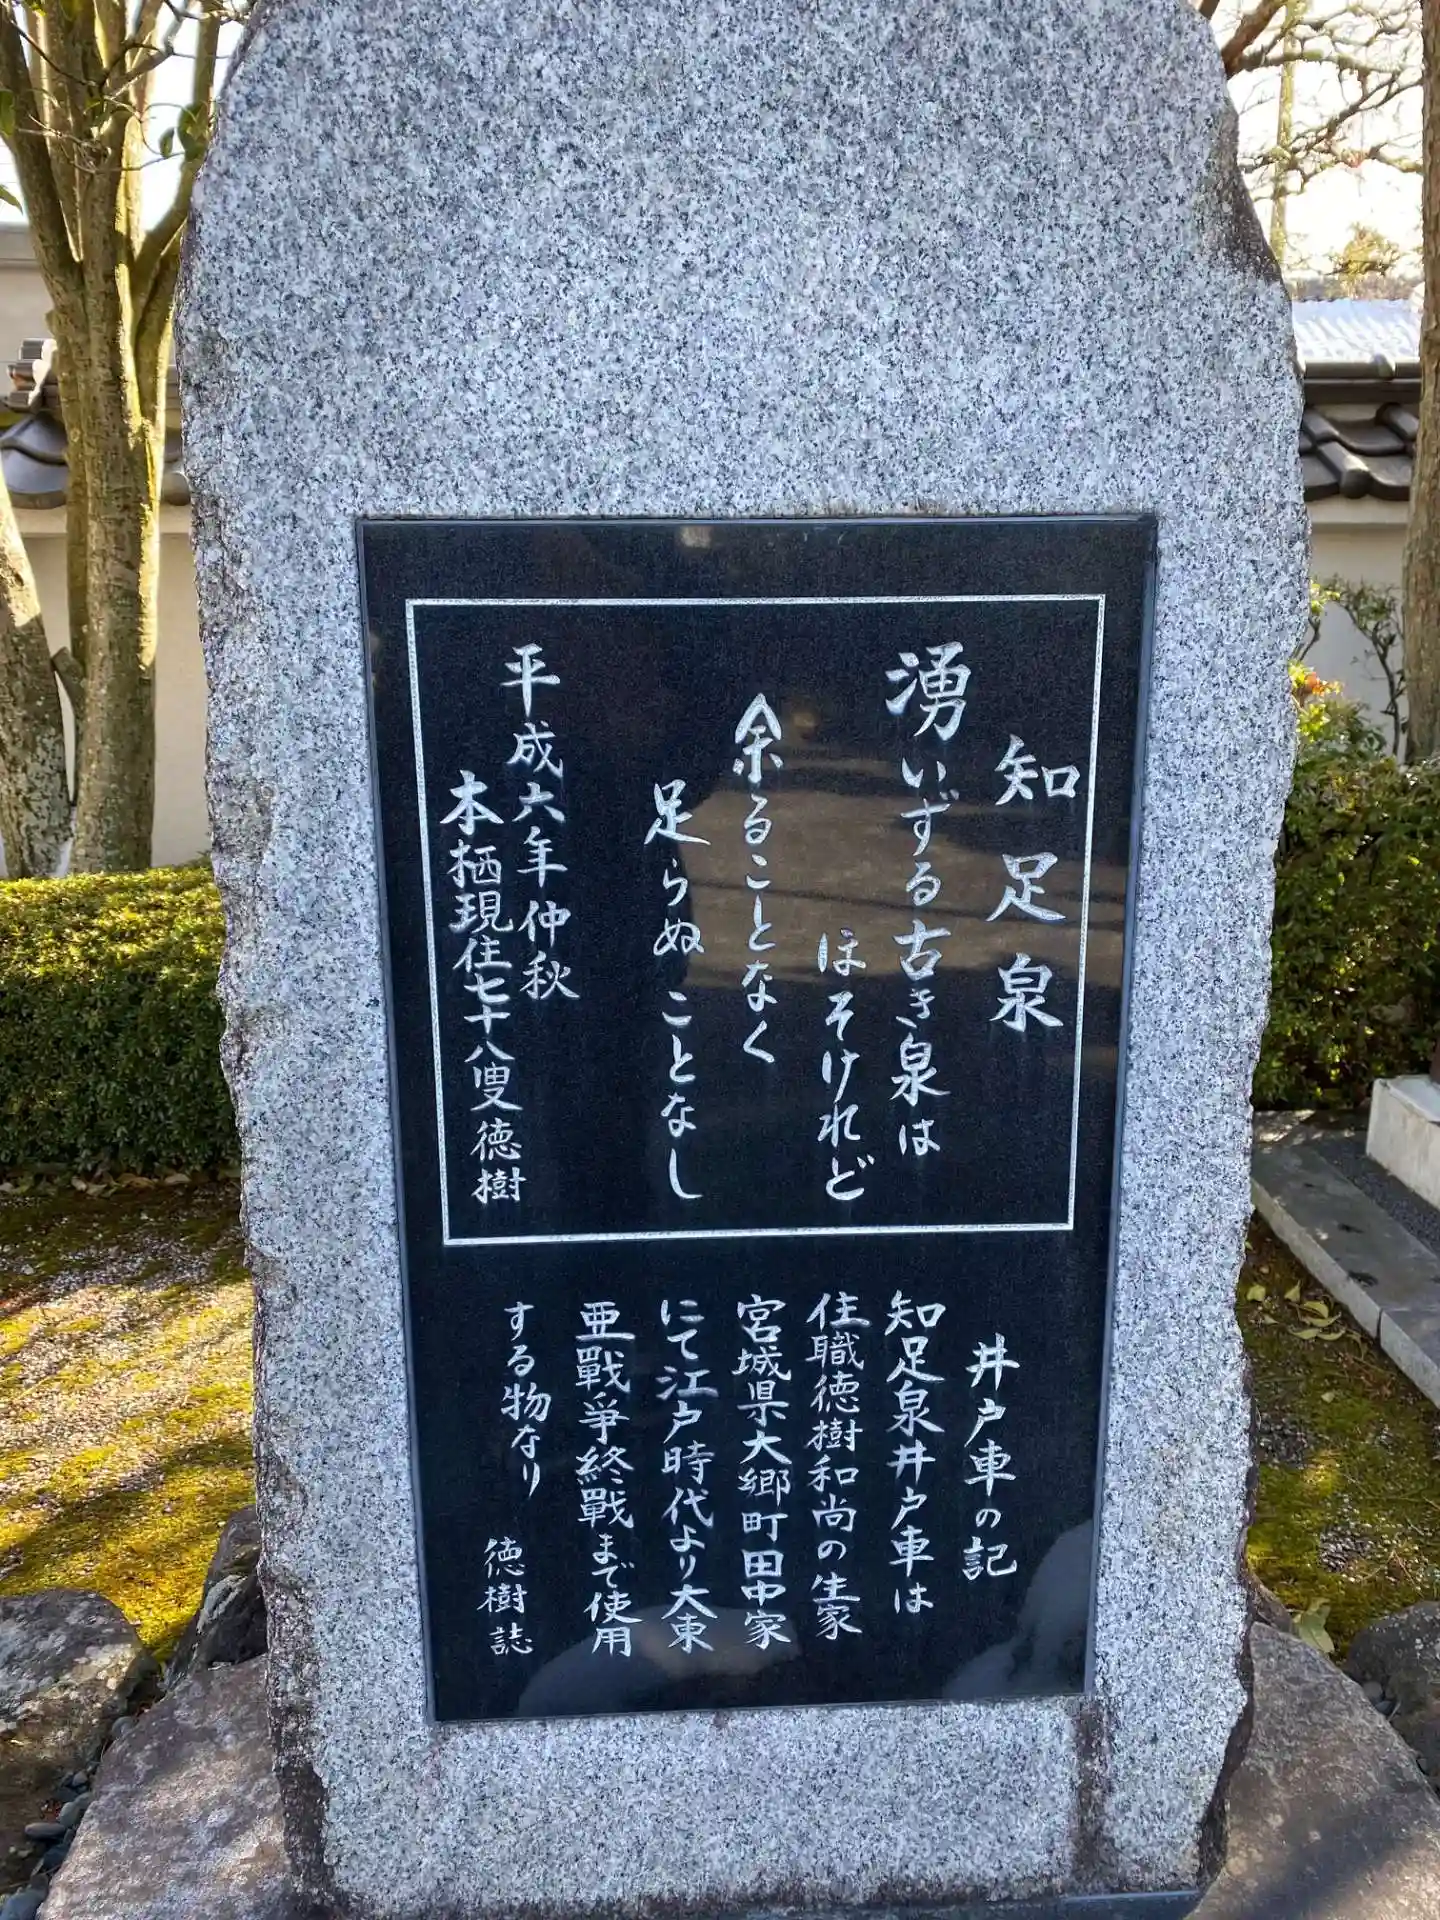 知足泉
湧いずる古き泉は
ほそけれど
余ることなく
足らぬことなし
平成六年仲秋
本栖現住七十八叟徳樹
井戸車の記
知足泉井戸車は
住職徳樹和尚の生家
宮城県大郷町田中家
にて江戸時代より大東
亜戰爭終戰まで使用
する物なり
徳樹誌